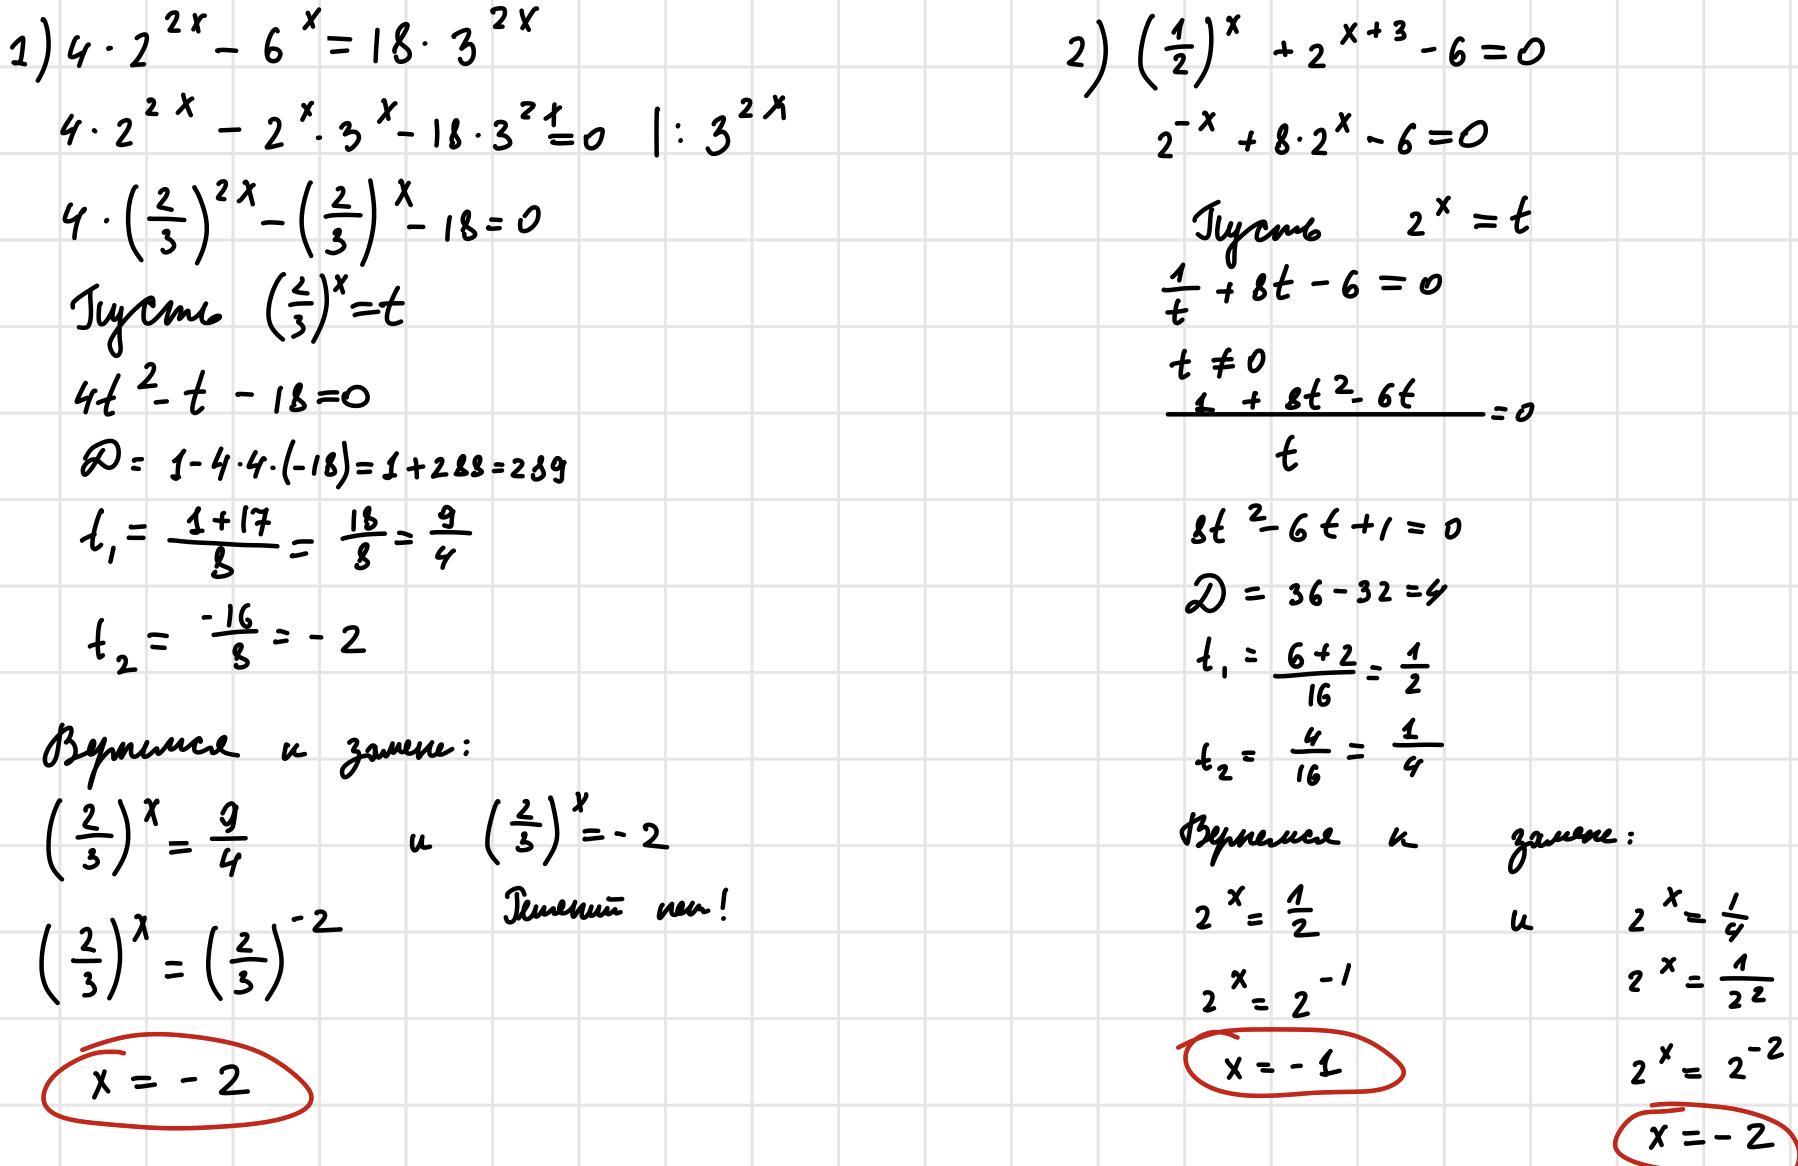 1) 4 · 2^{2x} − 6^x = 18 · 3^{2x}
4 · 2^{2x} − 2^x · 3^x − 18 · 3^{2x} = 0 | : 3^{2x}
4 · (2/3)^{2x} − (2/3)^x − 18 = 0
Пусть (2/3)^x = t
4t^2 − t − 18 = 0
D = 1 − 4 · 4 · (−18) = 1 + 288 = 289
t_1 = (1 + 17)/8 = 18/8 = 9/4
t_2 = −16/8 = −2
Вернемся к замене:
(2/3)^x = 9/4 и (2/3)^x = −2
Решений нет!
(2/3)^x = (2/3)^{−2}
x = −2
2) (1/2)^x + 2^{x+3} − 6 = 0
2^{−x} + 8 · 2^x − 6 = 0
Пусть 2^x = t
1/t + 8t − 6 = 0
t ≠ 0
(1 + 8t^2 − 6t)/t = 0
8t^2 − 6t + 1 = 0
D = 36 − 32 = 4
t_1 = (6 + 2)/16 = 1/2
t_2 = 4/16 = 1/4
Вернемся к замене:
2^x = 1/2 и 2^x = 1/4
2^x = 2^{−1} 2^x = 1/2^2
x = −1 2^x = 2^{−2}
x = −2